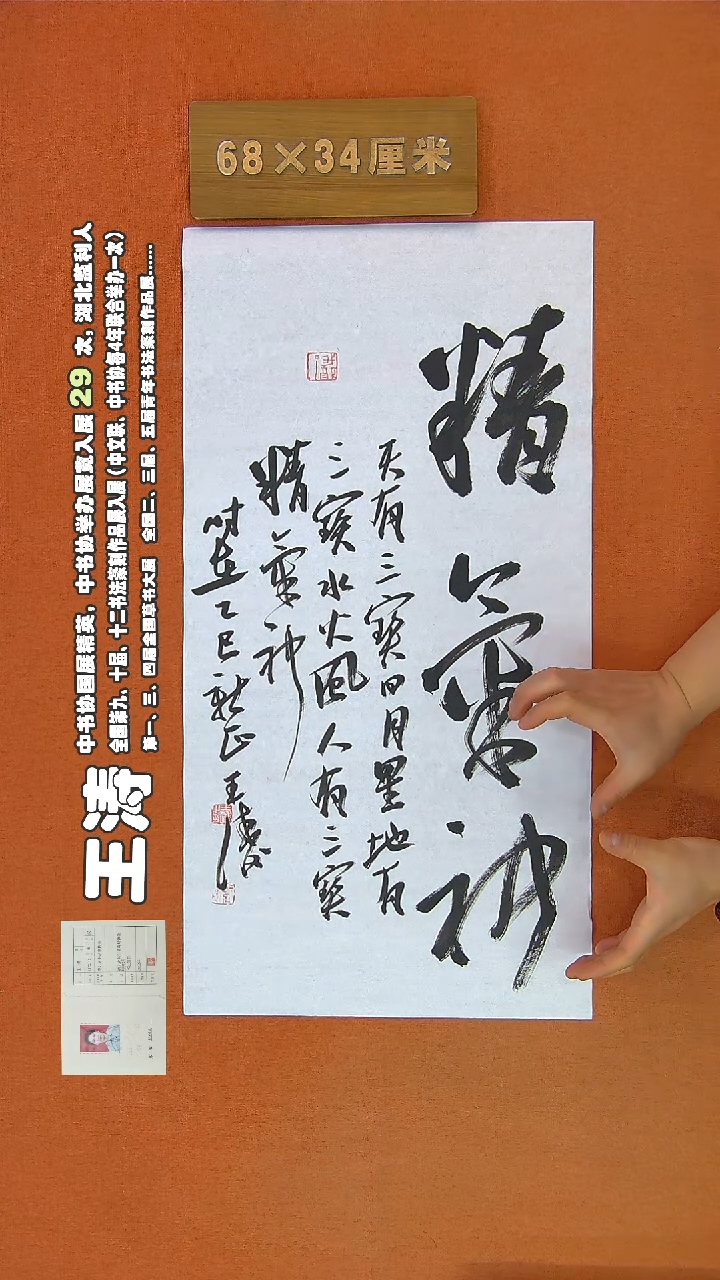 68×34厘米
精氣神
天有三寶日月星地有
三寶水火風人有三寶
精氣神
时在乙巳秋正王涛
王涛
中书协国展精英，中书协举办展赛入展 29 次，湖北监利人
全国第九、十届、十二书法篆刻作品展入展（中文联、中书协每4年联合举办一次）
第一、三、四届全国草书大展 全国二、三届、五届青年书法篆刻作品展……